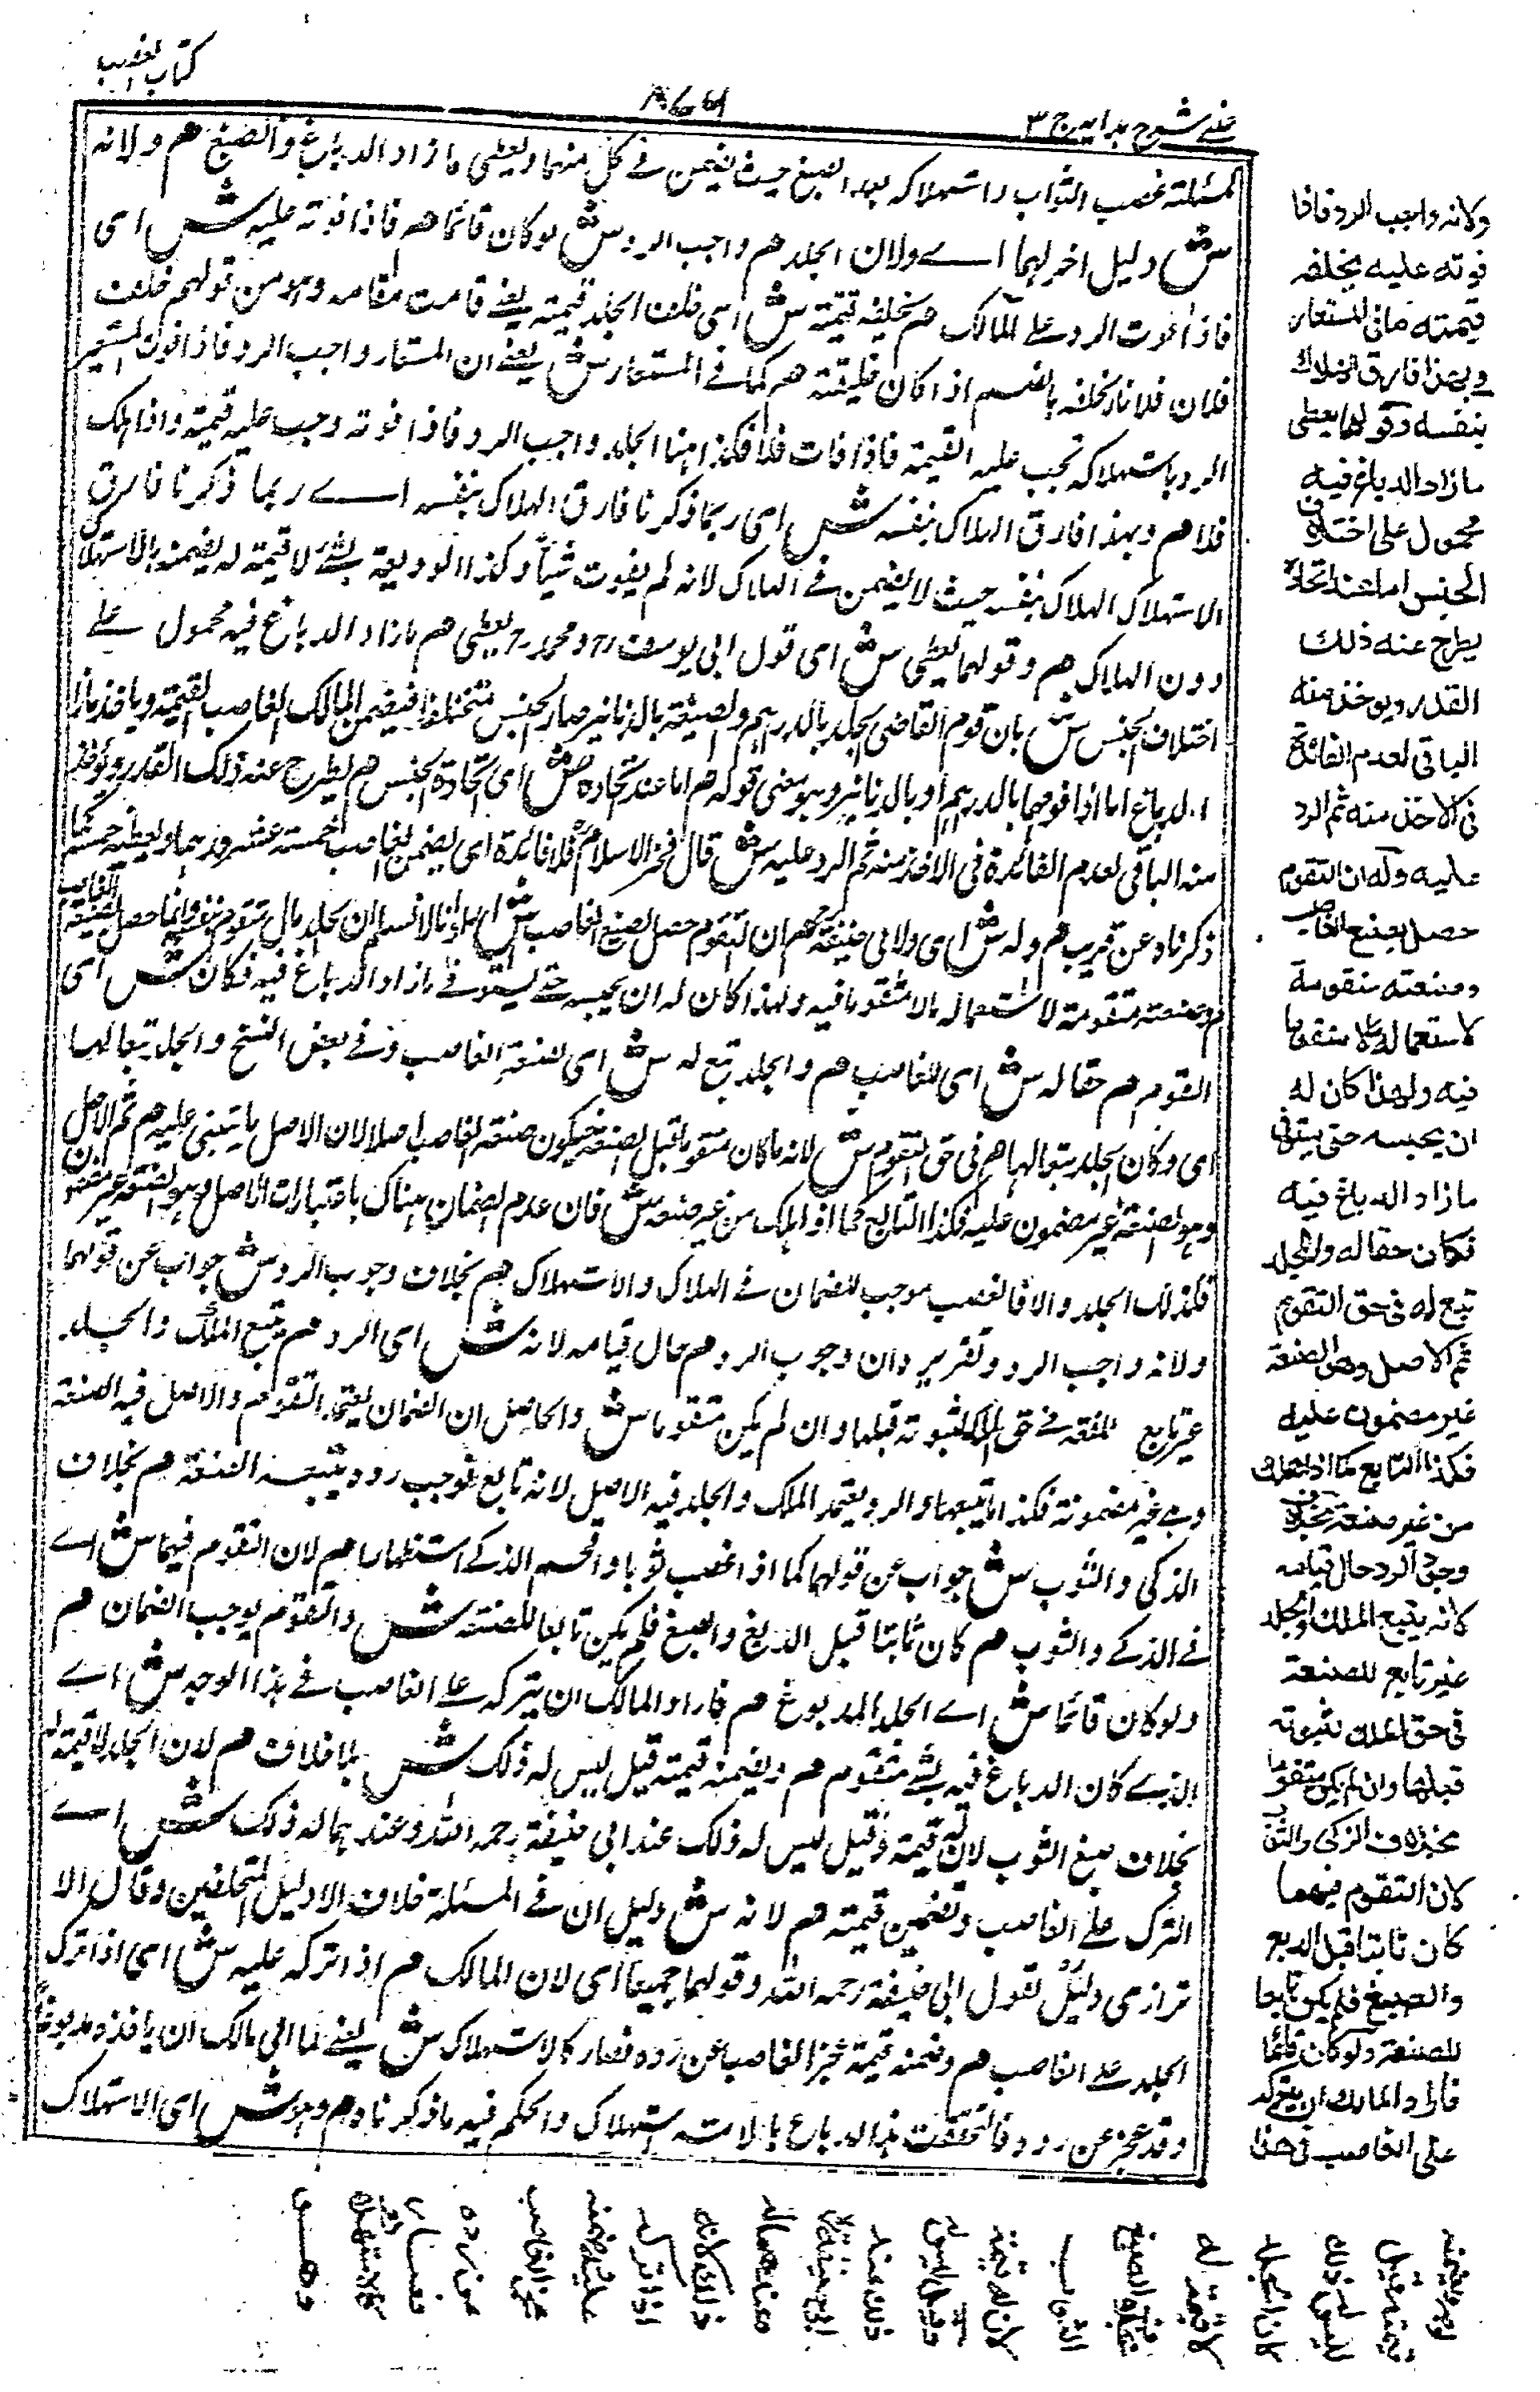 كتاب الغصب
٨٤٩
عینی شرح هدایہ ج ٣
كمسئلة غصب الثوب واستهلاكه بعد الصبغ حيث يضمن في كل منهما ويعطي ما زاد الدباغ والصبغ هم ولانه
ش دليل اخر لهما اے ولان الجلد هم واجب الرد ش لو كان قائما هم فاذا فوته عليه ش اي
فاذا فوت الرد على المالك هم يخلفه قيمته ش اي خلف الجلد قيمته يعني قامت مقامه وهو من قولهم خلف
فلان فلانا يخلفه بالضم اذا كان خليفته هم كما في المستعار ش يعني ان المستعار واجب الرد فاذا فوت المستعير
الرد باستهلاكه تجب عليه القيمة فاذا فات فلا فكذا هنا الجلد واجب الرد فاذا فوته وجب عليه قيمته واذا هلك
فلا هم وبهذا فارق الهلاك بنفسه ش اي وبما ذكرنا فارق الهلاك بنفسه اے وبما ذكرنا فارق
الاستهلاك الهلاك بنفسه حيث لا يضمن في الهلاك لانه لم يفوت شيأ وكذا الوديعة بشئ لا قيمة له يضمنه بالاستهلاك
دون الهلاك هم وقولهما يعطي ش اي قول ابي يوسف رح ومحمد رح يعطي هم ما زاد الدباغ فيه محمول على
اختلاف الجنس ش بان قوم القاضي الجلد بالدراهم والصبغة بالدنانير صار الجنس مختلفا فيضمن المالك الغاصب القيمة ويأخذ ما زاد
الدباغ اما اذا قومهما بالدراهم او بالدنانير وهو معنى قوله هم اما عند اتحاده ش اي اتحاد الجنس هم يطرح عنه ذلك القدر ويؤخذ
منه الباقي لعدم الفائدة في الاخذ منه ثم الرد عليه ش قال فخر الاسلام فلا فائدة اي يضمن الغاصب خمسة عشر درهما ويعطيه خمسة كما
ذكرناه عن قريب هم وله ش اي ولابي حنيفة رح هم ان التقوم حصل بصنع الغاصب ش اي انا لا نسلم ان الجلد مال متقوم بنفسه وانما حصل بصنعة الغاصب
هم وصنعته متقومة لاستعماله مالا متقوما فيه ولهذا كان له ان يحبسه حتى يستوفي ما زاد الدباغ فيه فكان ش اي
التقوم هم حقا له ش اي للغاصب هم والجلد تبع له ش اي لصنعة الغاصب وفي بعض النسخ والجلد تبعا لها
اي وكان الجلد تبعا لها هم في حق التقوم ش لانه ما كان متقوما قبل الصنعة فيكون صنعة الغاصب اصلا لان الاصل ما يبتني عليه هم ثم الاصل
وهو الصنعة غير مضمون عليه فكذا التابع كما اذا هلك من غير صنعه ش فان عدم الضمان هناك باعتبار ان الاصل وهو الصنعة غير مضمون
فكذلك الجلد والا فالغصب موجب للضمان في الهلاك والاستهلاك هم بخلاف وجوب الرد ش جواب عن قولهما
ولانه واجب الرد وتقريره ان وجوب الرد هم حال قيامه لانه ش اي الرد هم يتبع الملك والجلد
غير تابع للصنعة في حق الملك لثبوته قبلها وان لم يكن متقوما ش والحاصل ان الضمان يعتمد التقوم والاصل فيه الصنعة
وهي غير مضمونة فكذا ما يتبعها والرد يعتمد الملك والجلد فيه الاصل لانه تابع فوجب رده يتبعه الصنعة هم بخلاف
الذكي والثوب ش جواب عن قولهما كما اذا غصب ثوبا والحسم الذكے استظهارا هم لان التقوم فيهما ش اے
في الذكے والثوب هم كان ثابتا قبل الدبغ والصبغ فلم يكن تابعا للصنعة ش والتقوم يوجب الضمان هم
ولو كان قائما ش اے الجلد المدبوغ هم فاراد المالك ان يتركه على الغاصب في هذا الوجه ش اے
الذے كان الدباغ فيه بشئ متقوم هم ويضمنه قيمته قيل ليس له ذلك ش بلا خلاف هم لان الجلد لا قيمة له
بخلاف صبغ الثوب لان له قيمة وقيل ليس له ذلك عند ابي حنيفة رحمه الله وعندهما له ذلك ش اے
الترك على الغاصب وتضمين قيمته هم لانه ش دليل ان في المسئلة خلاف الا دليل المتخلفين وقال الا
ترازى دليل لقول ابي حنيفة رحمه الله وقولهما جميعا اي لان المالك هم اذا تركه عليه ش اي اذا ترك
الجلد على الغاصب هم وضمنه قيمته عجز الغاصب عن رده فصار كالاستهلاك ش يعني لما ابى المالك ان يأخذه مدبوغا
وقد عجز عن رده فالتحقت هذا الدباغ بالاستهلاك والحكم فيه ما ذكرناه هم وهو ش اي الاستهلاك
ولانه واجب الرد فاذا
فوته عليه يخلفه
قيمته كما في المستعار
وبهذا فارق الهلاك
بنفسه وقولهما يعطي
ما زاد الدباغ فيه
محمول على اختلاف
الجنس اما عند اتحاده
يطرح عنه ذلك
القدر ويوخذ منه
الباقي لعدم الفائدة
في الاخذ منه ثم الرد
عليه وله ان التقوم
حصل بصنع الغاصب
وصنعته متقومة
لاستعماله مالا متقوما
فيه ولهذا كان له
ان يحبسه حتى يستوفي
ما زاد الدباغ فيه
فكان حقا له والجلد
تبع له في حق التقوم
ثم الاصل وهو الصنعة
غير مضمون عليه
فكذا التابع كما اذا هلك
من غير صنعه بخلاف
وجوب الرد حال قيامه
لانه يتبع الملك والجلد
غير تابع للصنعة
في حق الملك لثبوته
قبلها وان لم يكن متقوما
بخلاف الذكي والثوب
لان التقوم فيهما
كان ثابتا قبل الدبغ
والصبغ فلم يكن تابعا
للصنعة ولو كان قائما
فاراد المالك ان يتركه
على الغاصب في هذا
الوجه ويضمنه
قيمته قيل
ليس له ذلك
لان الجلد
لا قيمة له
بخلاف صبغ
الثوب
لان له قيمة
وقيل ليس له
ذلك عند
ابي حنيفة رح
وعندهما له
ذلك لانه
اذا تركه
عليه وضمنه
عجز الغاصب
عن رده
فصار
كالاستهلاك
وهو